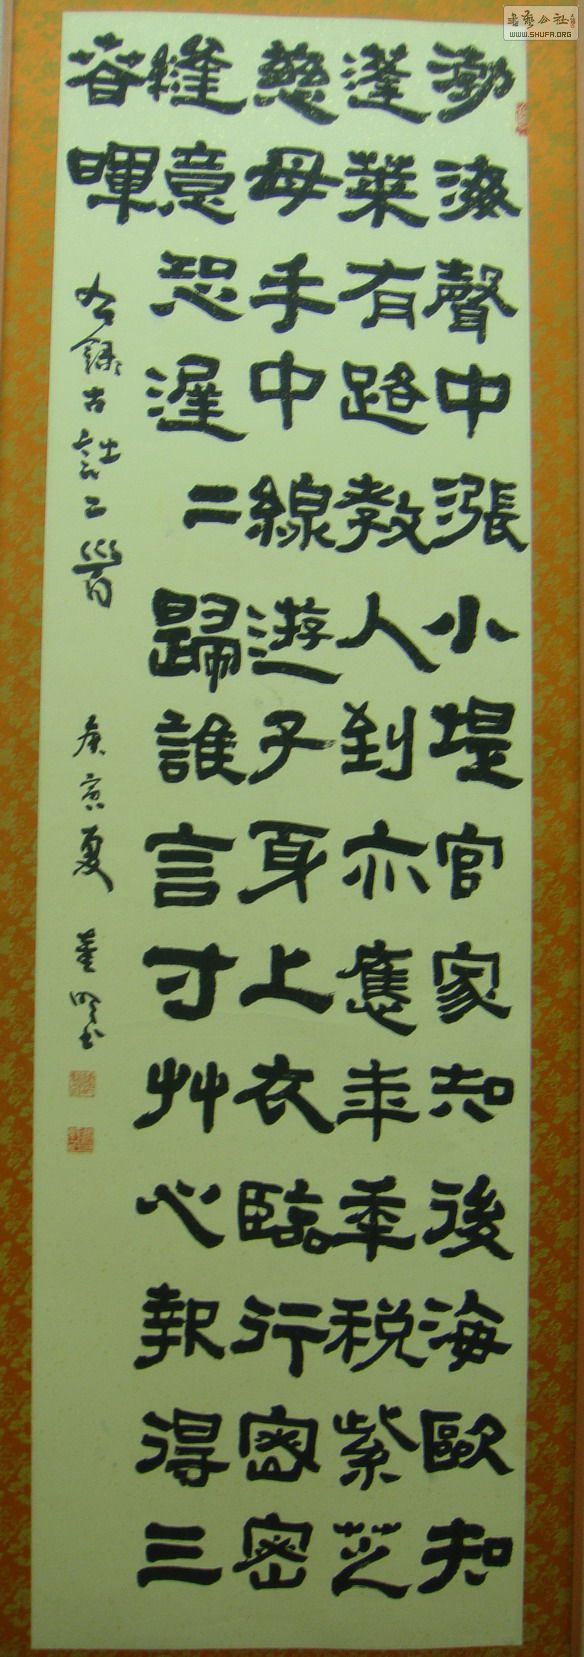 渤澥聲中漲小堤官家知後海歐知
蓬萊有路教人到亦應年年稅紫芝
慈母手中線遊子身上衣臨行密密
縫意恐遲二歸誰言寸艸心報得三
春暉
右錄古詩二首 庚寅夏
書藝公社
WWW.SHUFA.ORG